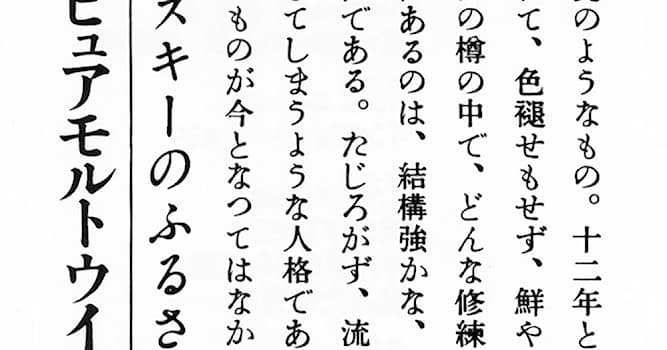 のようなもの。十二年と
て、色褪せもせず、鮮や
の樽の中で、どんな修練
あるのは、結構強かな、
である。たじろがず、流
てしまうような人格であ
ものが今となつてはなか
スキーのふるさ
ピュアモルトウイ